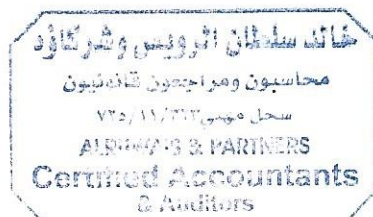 خالد سلطان الرويس وشركاؤه
محاسبون ومراجعون قانونيون
سجل مهني
& PARTNERS
Certified Accountants
& Auditors